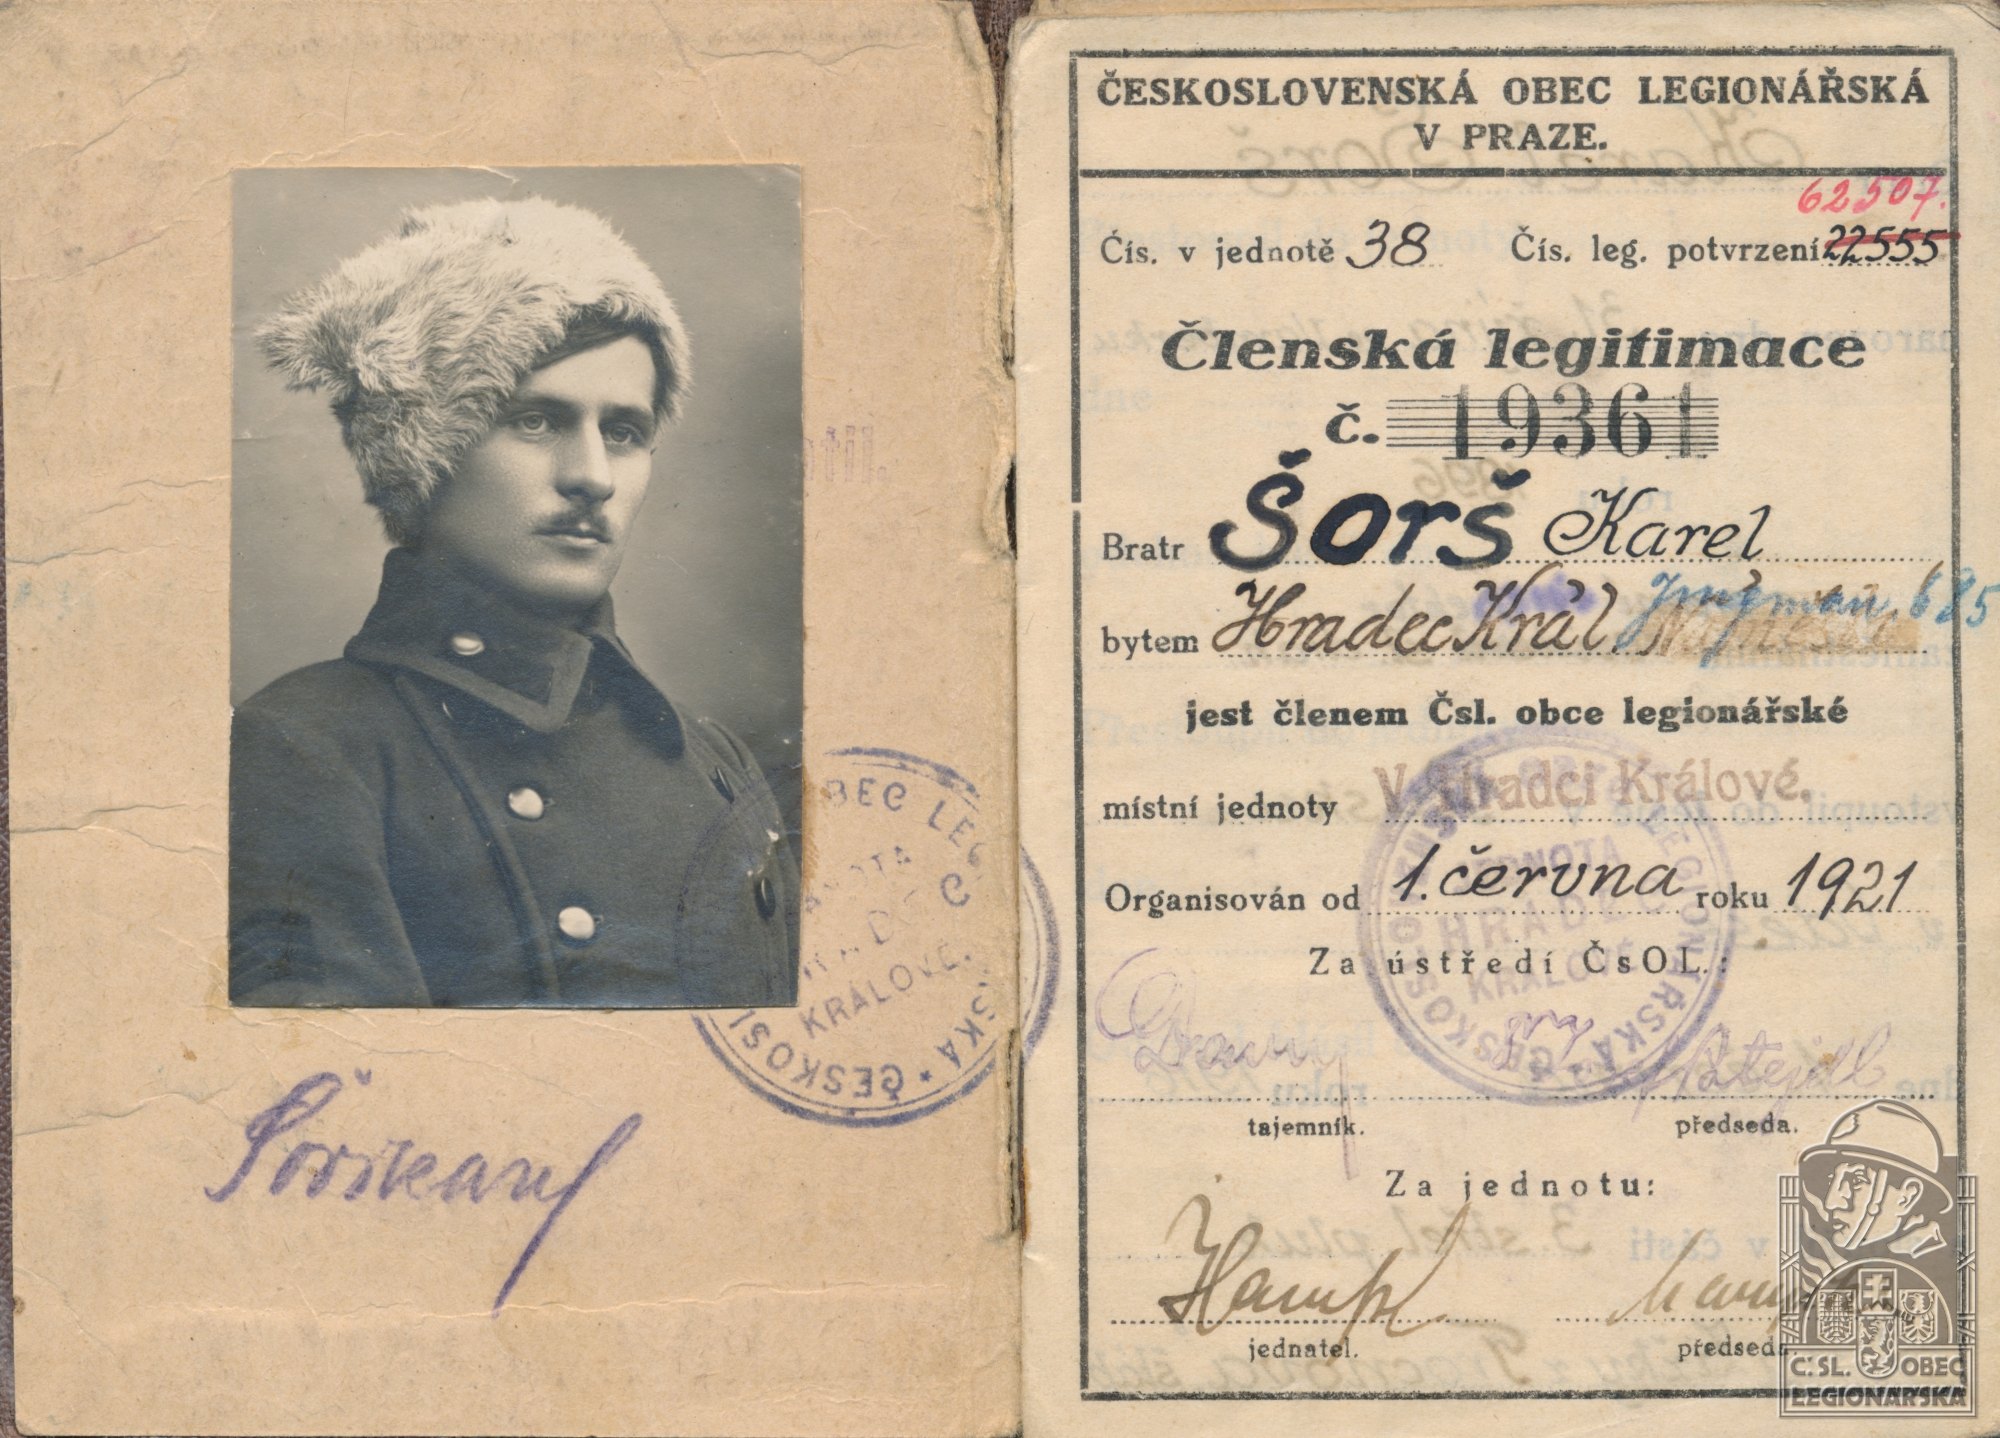 Šorš Karel
ČESKOSLOVENSKÁ OBEC LEGIONÁŘSKÁ
V PRAZE.
62507.
Čís. v jednotě 38 Čís. leg. potvrzení 22555
Členská legitimace
č. 19361
Bratr Šorš Karel
bytem Hradec Král. 685
jest členem Čsl. obce legionářské
místní jednoty V Hradci Králové.
Organisován od 1. června roku 1921
Za ústředí ČsOL.:
tajemník. předseda.
Za jednotu:
Hampl
jednatel. předseda.
ČESKOSLOVENSKÁ OBEC LEGIONÁŘSKÁ
JEDNOTA
HRADEC
KRÁLOVÉ
BEC LEG SKÁ * ČESKOS
KRÁLOVÉ.
Č. SL. OBEC
LEGIONÁŘSKÁ